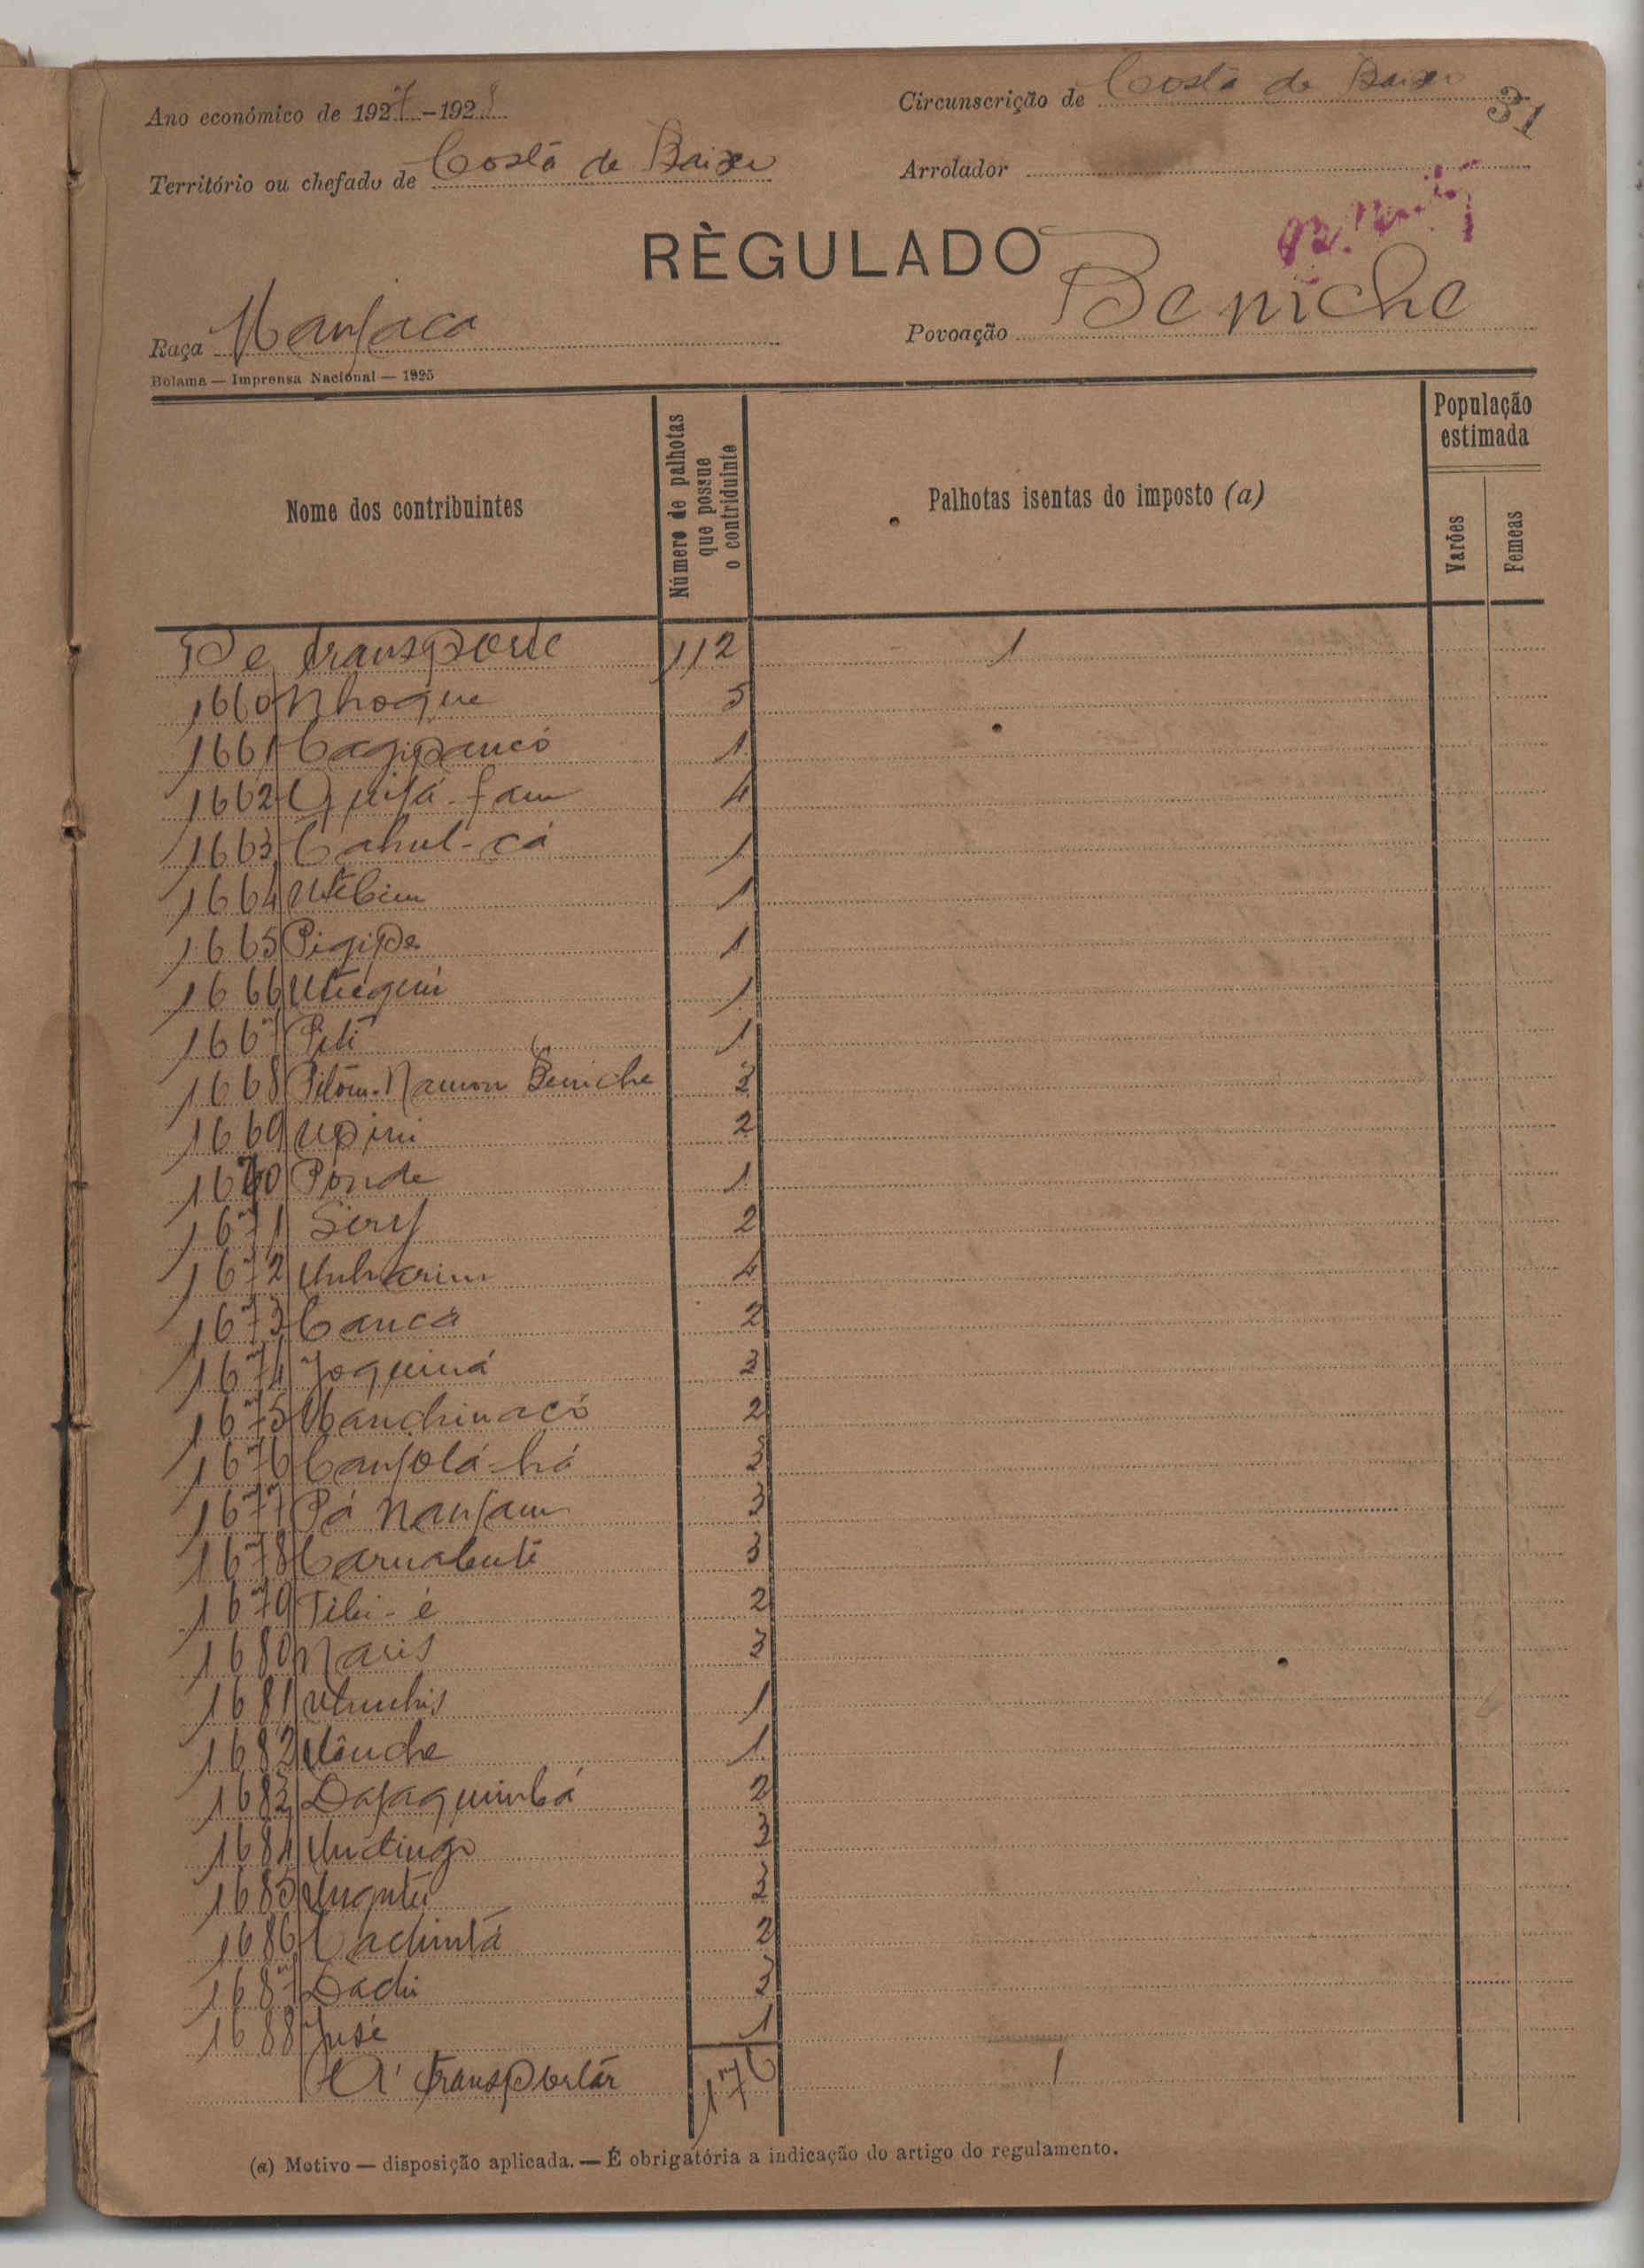 Ano económico de 1927-1928
Circunscrição de Costa de Baixo
31
Território ou chefado de Costa de Baixo
Arrolador
RÈGULADO
Raça Manjaca
Povoação Beniche
Bolama — Imprensa Nacional — 1925
Nome dos contribuintes
Número de palhotas que possue o contriduinte
Palhotas isentas do imposto (a)
População estimada
Varões
Femeas
De transporte 112 1
1660 Nhoque 5
1661 Cagipancó 1
1662 Quijá-fam 4
1663 Cahul-cá 1
1664 Utébim 1
1665 Pigipe 1
1666 Utiéguui 1
1667 Piti 1
1668 Pitôm-Namon Beniche 2
1669 Upini 2
1670 Ponde 1
1671 Sery 2
1672 4
1673 Canca 2
1674 Joquiná 3
1675 Manchinacó 2
1676 Canjolá-há 3
1677 Pá Nanjam 3
1678 Carnabuté 3
1679 Tibi-é 2
1680 Naris 3
1681 1
1682 1
1683 Dajaquimbá 2
1684 Undingo 3
1685 3
1686 Cachintá 2
1687 Dachi 3
1688 José 1
A' transportár 176 1
(a) Motivo — disposição aplicada. — É obrigatória a indicação do artigo do regulamento.